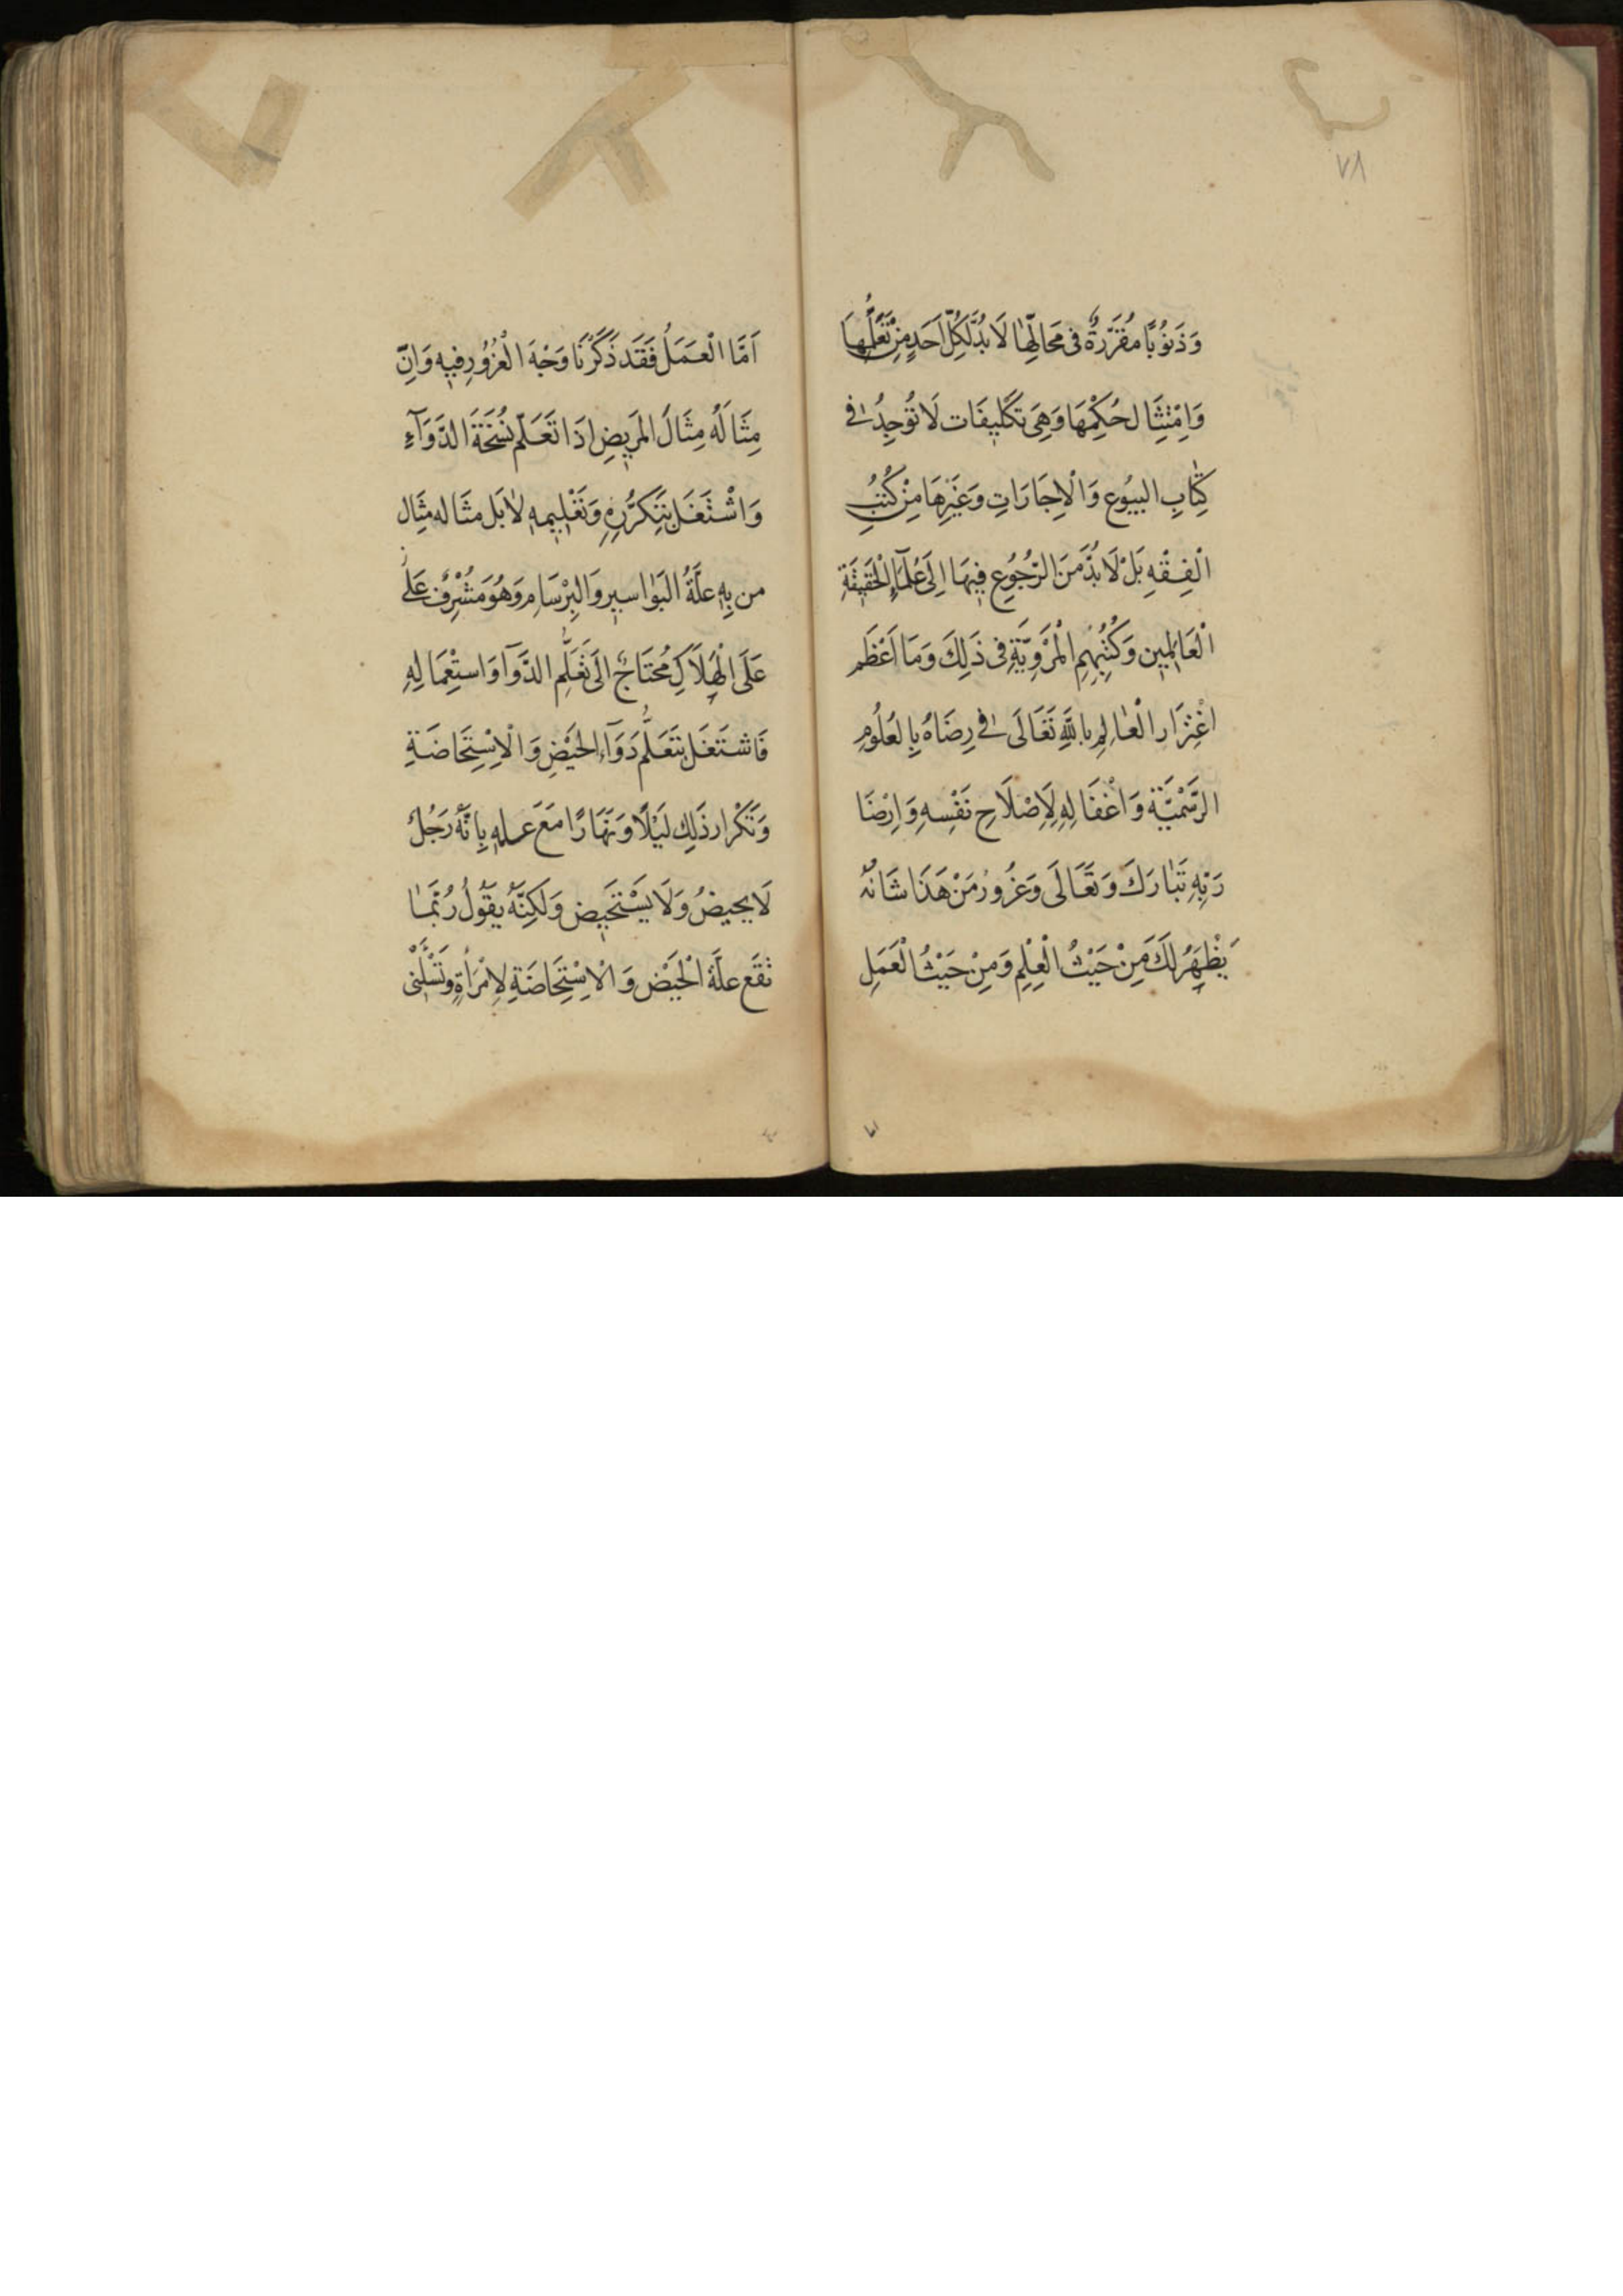 ٧٨
وَذَنُوبًا مُقَرَّرَةٌ فى مَحَالِّهَا لَا بُدَّ لِكُلِّ اَحَدٍ مِنْ تَعَلُّمِهَا
وَاِمْتِثَال حُكْمِهَا وَهِىَ تَكْلِيفَات لَا تُوجَدُ فى
كِتَابِ البيُوعِ وَالْاِجَارَاتِ وَغَيْرِهَا مِنْ كُتُبِ
الْفِقْهِ بَلْ لَا بُدَّ مَنَ الرُّجُوُعِ فِيهَا اِلَى عُلَمَآءِ الْحَقِيقَةِ
الْعَامِلِين وَكُتُبِهِمِ الْمَرْوِيَّةِ فى ذَلِكَ وَمَا اَعْظَم
اغْتِرَار الْعَالِمِ بِاللهِ تَعَالَى فى رِضَاهُ بِالعُلُومِ
الرَّسْمْيَّة وَاغْفَالِهِ لِاِصْلَاحِ نَفْسِهِ وَاِرْضَا
رَبِّهِ تَبَارَكَ وَتَعَالَى وَغَرُورُ مَنْ هَذَا شَانُهُ
يَظْهَرُ لَكَ مَنْ حَيْثُ الْعِلْمِ وَمِنْ حَيْثُ الْعَمَلِ
اَمَّا الْعَمَلُ فَقَد ذَكَرْنَا وَجْهَ الْغُرُورِ فيهِ وَاِنَّ
مِثَالَهُ مِثَالُ المَرِيضِ اِذَا تَعَلَّمَ نُسْخَةَ الدَّوَآءِ
وَاشْتَغَلَ بِتَكَرُّرِهِ وَتَعْلِيمِهِ لَا بَل مثَاله مِثَال
من بِهِ علَّةُ البَوَاسير وَالبِرْسَامِ وَهُوَ مُشْرِفٌ عَلَى
عَلَى الْهَلَاكِ مُحْتَاجٌ الَى تَعَلُّمِ الدَّوَآ وَاستِعْمَالِهِ
فَاشتَغَلَ بِتَعَلُّم دَوَآءِ الحَيْضِ وَالْاِسْتِحَاضَةِ
وَتَكْرَار ذَلِك لَيْلًا وَنَهَارًا مَعَ علمهِ بِاَنَّهُ رَجُلٌ
لَا يحيضُ وَلَا يَسْتَحِيض وَلَكِنَّهُ يَقُولُ رُبَّمَا
تَقَع علَّة الْحَيْض وَالْاِسْتِحَاضَةِ لِاِمْرَأَةٍ وَتَسْئَلُنِى